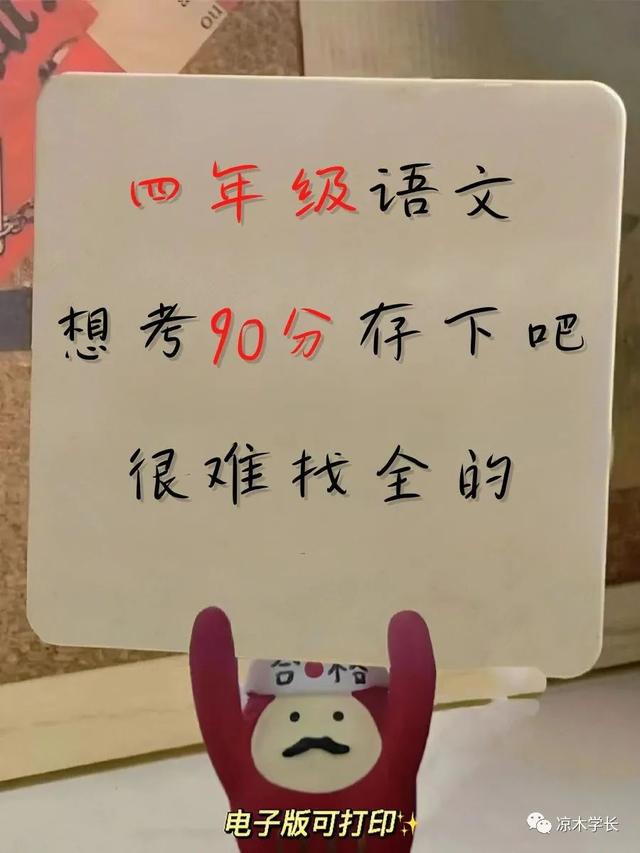 ou
四年级语文
想考90分存下吧
很难找全的
合格
电子版可打印✨
凉木学长